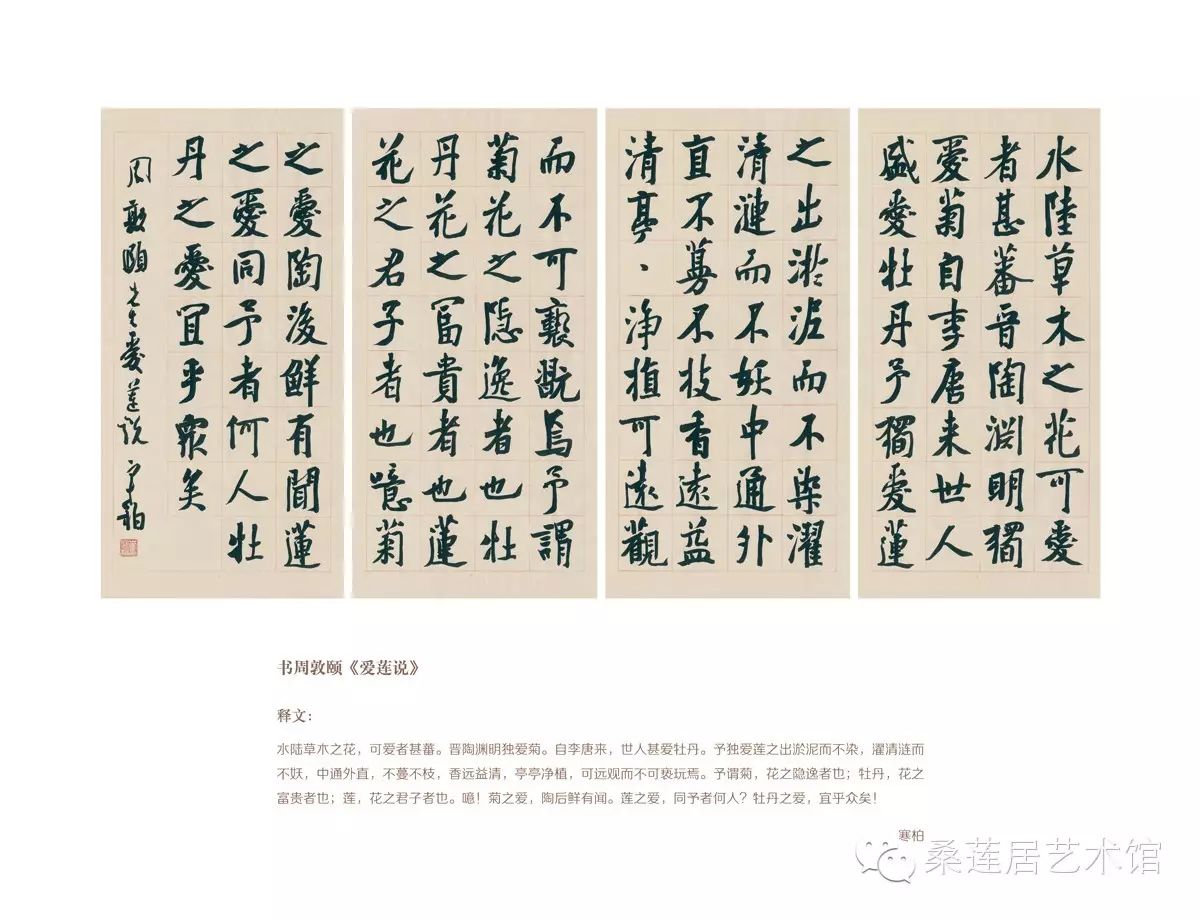 水陸草木之花可愛
者甚蕃晉陶淵明獨
愛菊自李唐来世人
盛愛牡丹予獨愛蓮
之出淤泥而不染濯
清漣而不妖中通外
直不蔓不枝香遠益
清亭、净植可遠觀
而不可褻翫焉予謂
菊花之隐逸者也牡
丹花之富貴者也蓮
花之君子者也噫菊
之愛陶後鮮有聞蓮
之愛同予者何人牡
丹之愛宜乎眾矣
周敦頤先生愛莲説 寒柏
书周敦颐《爱莲说》
释文：
水陆草木之花，可爱者甚蕃。晋陶渊明独爱菊。自李唐来，世人甚爱牡丹。予独爱莲之出淤泥而不染，濯清涟而
不妖，中通外直，不蔓不枝，香远益清，亭亭净植，可远观而不可亵玩焉。予谓菊，花之隐逸者也；牡丹，花之
富贵者也；莲，花之君子者也。噫！菊之爱，陶后鲜有闻。莲之爱，同予者何人？牡丹之爱，宜乎众矣！
寒柏
桑莲居艺术馆